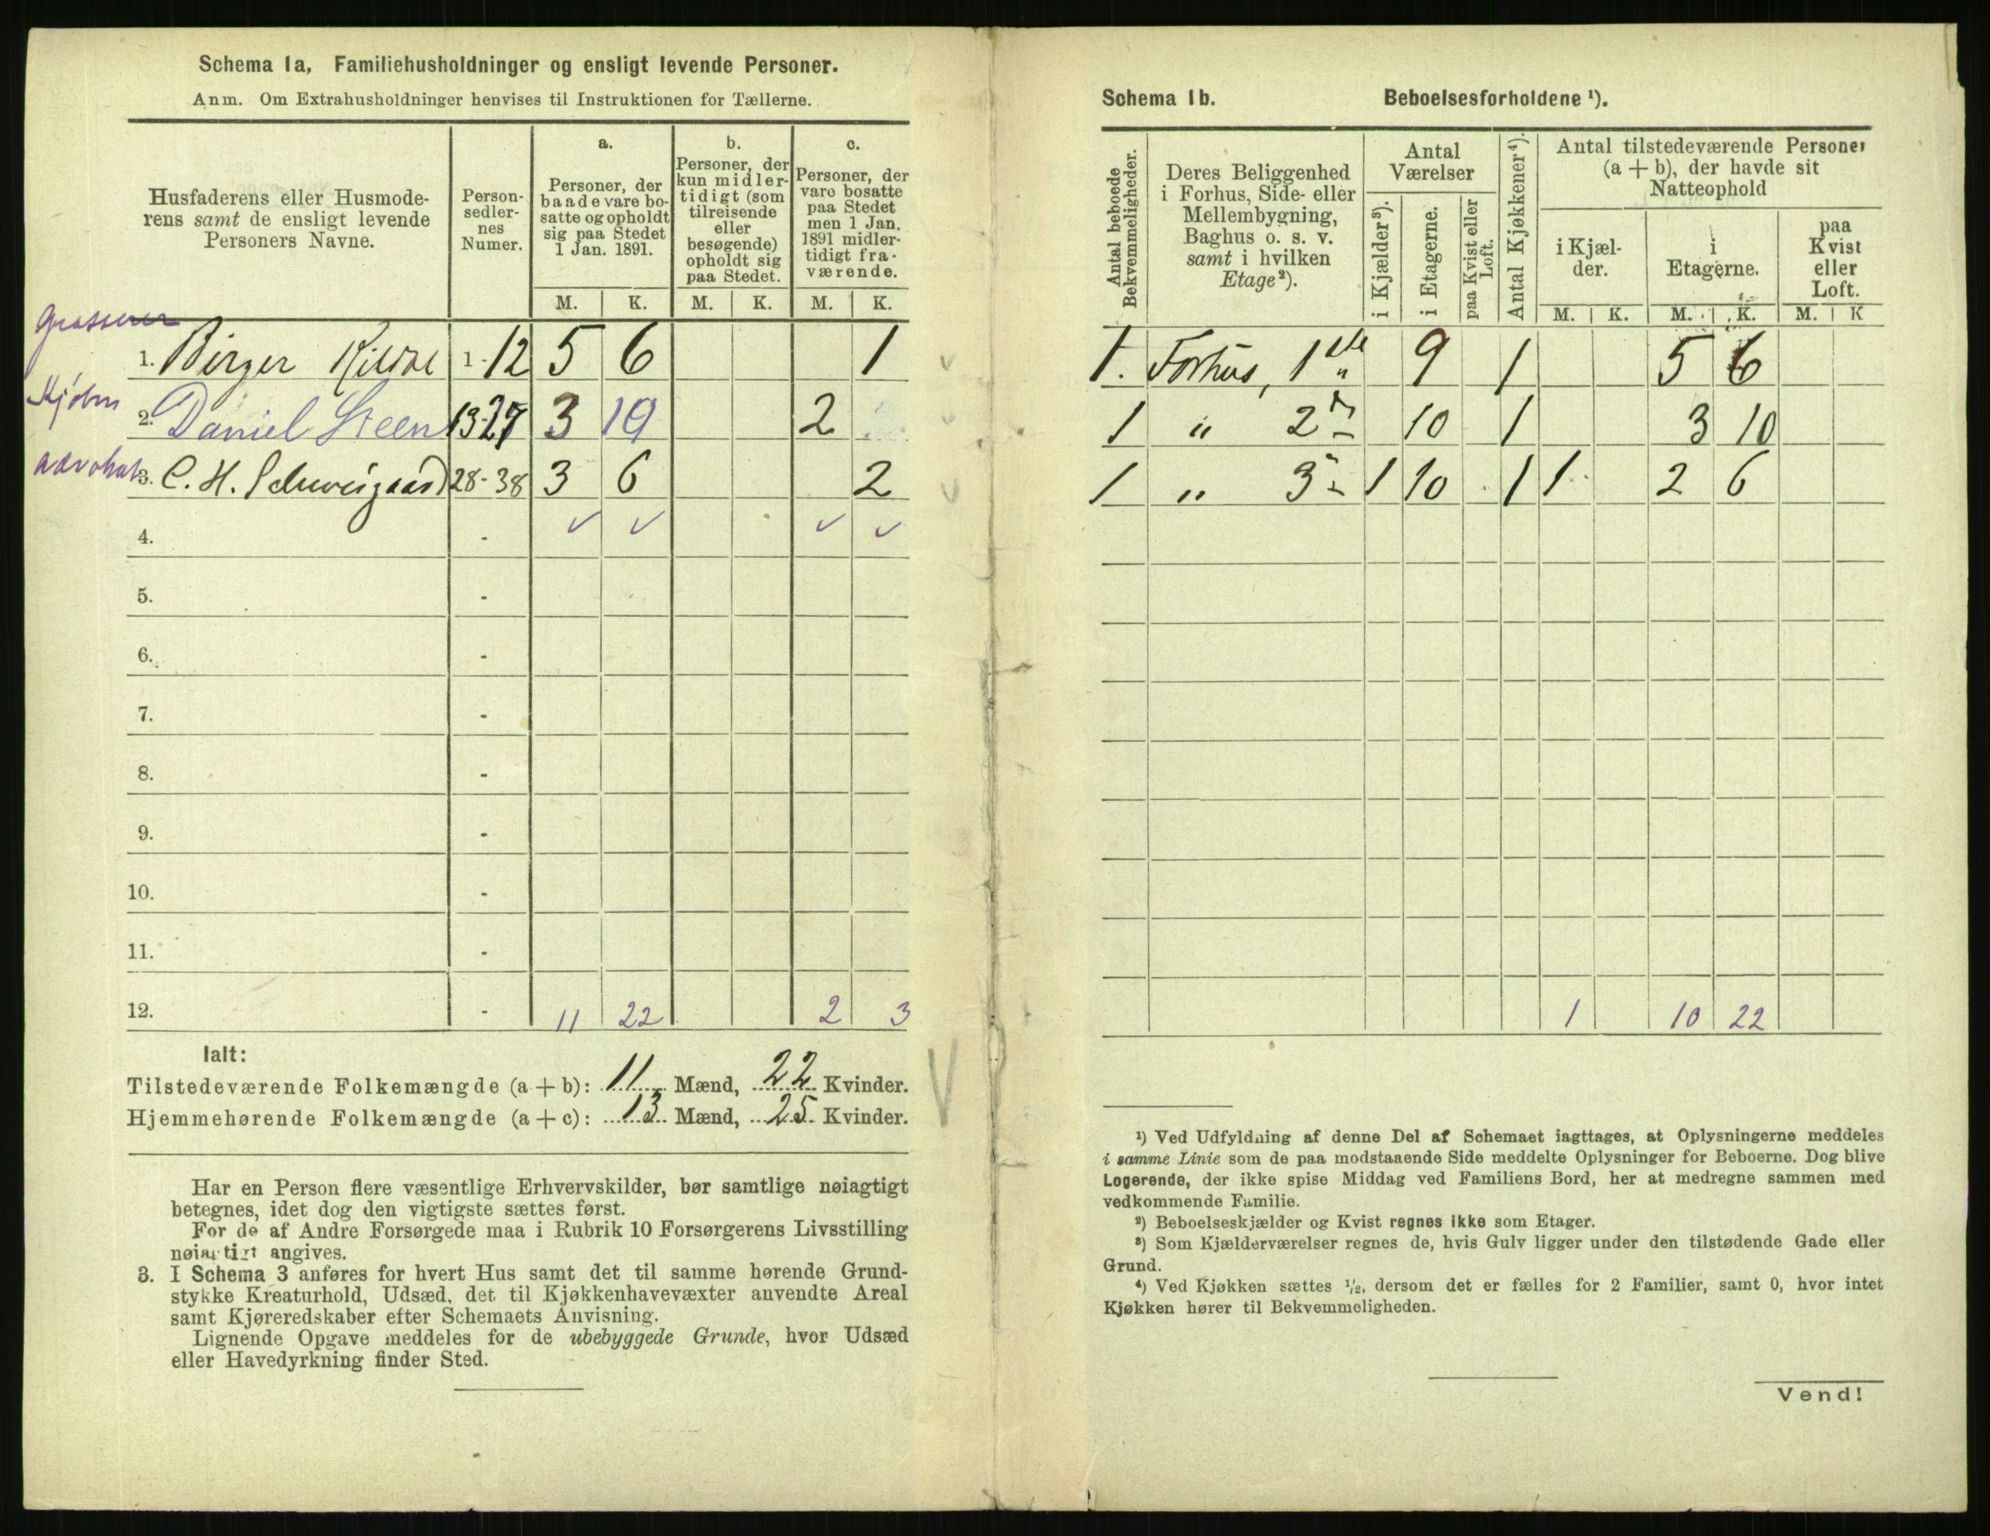 Schema 1a, Familiehusholdninger og ensligt levende Personer.
Anm. Om Extrahusholdninger henvises til Instruktionen for Tællerne.
Husfaderens eller Husmode-
rens samt de ensligt levende
Personers Navne.
Person-
sedler-
nes
Numer.
a.
Personer, der
baade vare bo-
satte og opholdt
sig paa Stedet
1 Jan. 1891.
b.
Personer, der
kun midler-
tidigt (som
tilreisende
eller
besøgende)
opholdt sig
paa Stedet.
c.
Personer, der
vare bosatte
paa Stedet
men 1 Jan.
1891 midler-
tidigt fra-
værende.
M. K. M. K. M. K.
Grosserer
1. Birger Kildal 1-12 5 6 1
Kjøbm
2. Daniel Steen 13-27 3 10 2
advokat
3. C. H. Schweigaard 28-38 3 6 2
4. -
5. -
6. -
7. -
8. -
9. -
10. -
11. -
12. - 11 22 2 3
Ialt:
Tilstedeværende Folkemængde (a + b): 11 Mænd, 22 Kvinder.
Hjemmehørende Folkemængde (a + c): 13 Mænd, 25 Kvinder.
Har en Person flere væsentlige Erhvervskilder, bør samtlige nøiagtigt
betegnes, idet dog den vigtigste sættes først.
For de af Andre Forsørgede maa i Rubrik 10 Forsørgerens Livsstilling
nøiagtigt angives.
3. I Schema 3 anføres for hvert Hus samt det til samme hørende Grund-
stykke Kreaturhold, Udsæd, det til Kjøkkenhavevæxter anvendte Areal
samt Kjøreredskaber efter Schemaets Anvisning.
Lignende Opgave meddeles for de ubebyggede Grunde, hvor Udsæd
eller Havedyrkning finder Sted.
Schema 1b. Beboelsesforholdene ¹).
Antal beboede
Bekvemmeligheder.
Deres Beliggenhed
i Forhus, Side- eller
Mellembygning,
Baghus o. s. v.
samt i hvilken
Etage²).
Antal
Værelser
i Kjælder³).
i Etagerne.
paa Kvist eller
Loft.
Antal Kjøkkener⁴).
Antal tilstedeværende Personer
(a + b), der havde sit
Natteophold
i Kjæl-
der.
i
Etagerne.
paa
Kvist
eller
Loft.
M. K. M. K. M. K
1. Forhus, 1ste 9 1 5 6
1 " 2 10 1 3 10
1 " 3 1 10 1 1 2 6
1 10 22
¹) Ved Udfyldning af denne Del af Schemaet iagttages, at Oplysningerne meddeles
i samme Linie som de paa modstaaende Side meddelte Oplysninger for Beboerne. Dog blive
Logerende, der ikke spise Middag ved Familiens Bord, her at medregne sammen med
vedkommende Familie.
²) Beboelseskjælder og Kvist regnes ikke som Etager.
³) Som Kjælderværelser regnes de, hvis Gulv ligger under den tilstødende Gade eller
Grund.
⁴) Ved Kjøkken sættes ½, dersom det er fælles for 2 Familier, samt 0, hvor intet
Kjøkken hører til Bekvemmeligheden.
Vend!